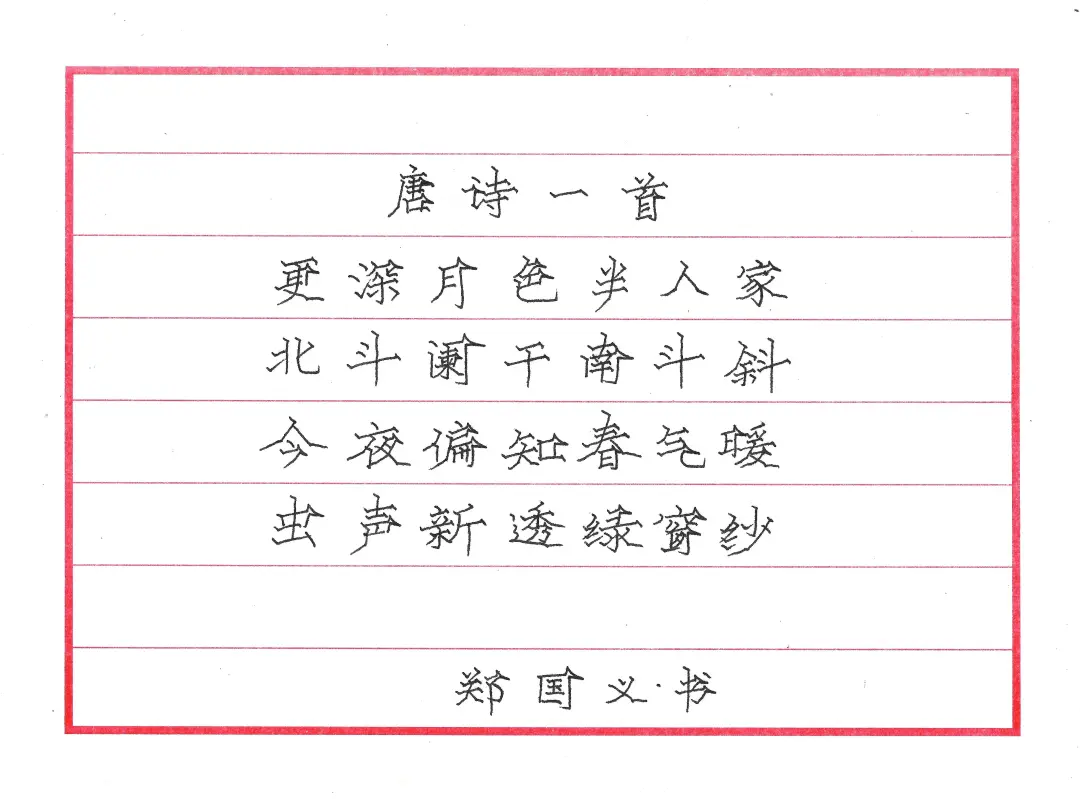 唐诗一首
更深月色半人家
北斗阑干南斗斜
今夜偏知春气暖
虫声新透绿窗纱
郑国义·书